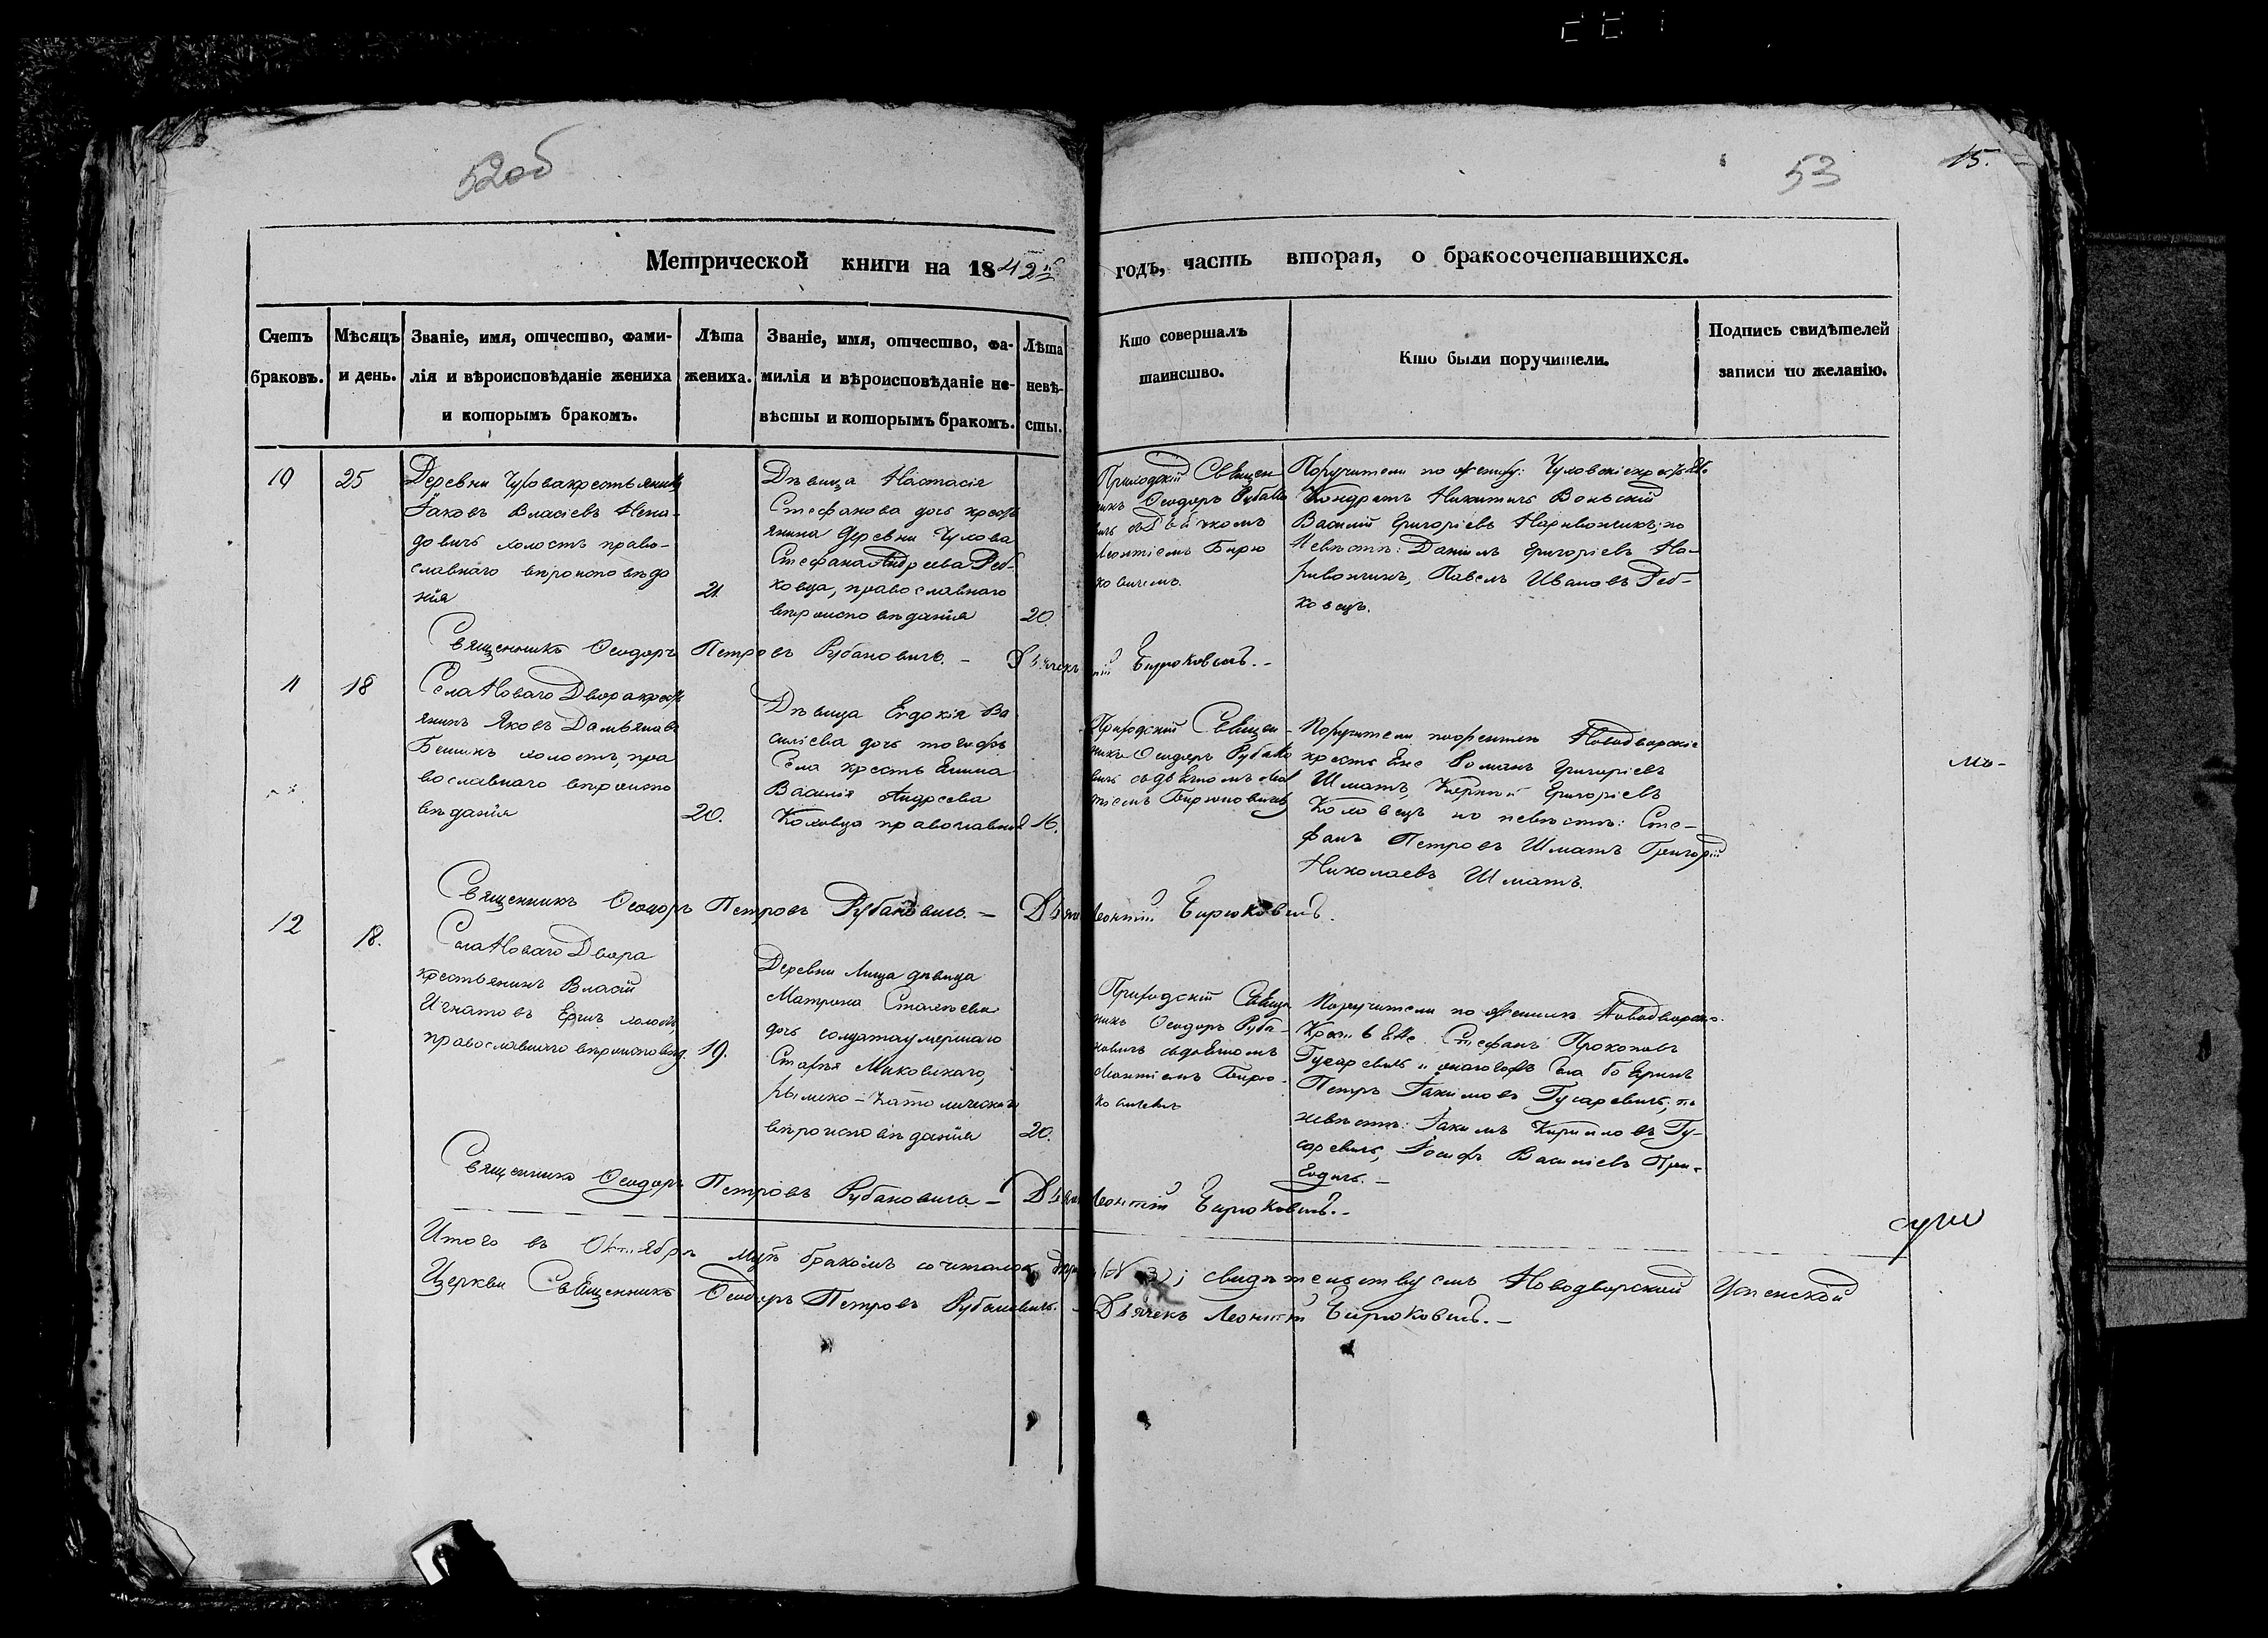 52об
53
15.
Метрической книги на 1842й
годъ, часть вторая, о бракосочетавшихся.
Счетъ браковъ.
Мѣсяцъ и день.
Званіе, имя, отчество, фами-
лія и вѣроисповѣданіе жениха
и которымъ бракомъ.
Лѣта
жениха.
Званіе, имя, отчество, фа-
милія и вѣроисповѣданіе не-
вѣсты и которымъ бракомъ.
Лѣта
невѣ-
сты.
Кто совершалъ
таинство.
Кто были поручители.
Подпись свидѣтелей
записи по желанію.
10
25
Деревни Чулова крестьянинъ
Іаковъ Власіевъ Нена-
довичъ холостъ право-
славнаго вѣроисповѣда
нія
21.
Дѣвица Настасія
Стефанова дочь кресть
янина деревни Чулова
Стефана Андреева Реб-
ковца, православнаго
вѣроисповѣданія
20.
Приходскій Священ
никъ Ѳеодоръ Рубано
вичъ съ Дьячкомъ
Леонтіемъ Бирю
ковичемъ.
Поручители по жениху: Чуловскіе крестьяне
Кондратъ Никитичъ
Василій Григоріевъ по
Невѣстѣ: Даніилъ Григоріевъ
Павелъ Ивановъ Реб-
ковецъ.
Священникъ Ѳеодоръ Петровъ Рубановичъ. – Дьячекъ
Бирюковичъ. –
11
18
Села Новаго Двора кресть
янинъ Яковъ Дамьяновъ
холостъ, пра
вославнаго вѣроиспо
вѣданія
20.
Дѣвица Евдокія Ва
силіева дочь тогожъ
Села крестьянина
Василія Андреева
православная
16.
Приходскій Священ-
никъ Ѳеодоръ Рубано
вичъ съ дьячкомъ Леон
тіемъ Бирюковичемъ
Поручители по женихѣ Новодворскіе
крестьяне Романъ Григоріевъ
Шматъ, Григоріевъ
по невѣстѣ: Сте-
фанъ Петровъ Шматъ Григорій
Николаевъ Шматъ.
Священникъ Ѳеодоръ Петровъ Рубановичъ. –
Леонтій Бирюковичъ.
12
18.
Села Новаго Двора
крестьянинъ Власій
Игнатовъ холостъ
православнаго вѣроисповѣд.
19.
Деревни Лища дѣвица
Матрона
дочь солдата умершаго
римско-католическаго
вѣроисповѣданія
20.
Приходскій Священ
никъ Ѳеодоръ Руба-
новичъ съ дьячкомъ
Леонтіемъ Бирю-
ковичемъ
Поручители по женихѣ Новодворскіе
Крестьяне Стефанъ Прокоповъ
Гусаревичъ и онаго жъ Села
Петръ Іакимовъ Гусаревичъ; по
невѣстѣ: Іакимъ Кирилловъ Гу-
саревичъ, Іосифъ Василіевъ
Священникъ Ѳеодоръ Петровъ Рубановичъ –
Леонтій Бирюковичъ. –
Итого въ Октябрѣ мцѣ бракомъ сочеталось
свидѣтельствуемъ Новодворской Успенской
Церкви Священникъ Ѳеодоръ Петровъ Рубановичъ. –
Дьячекъ Леонтій Бирюковичъ. –